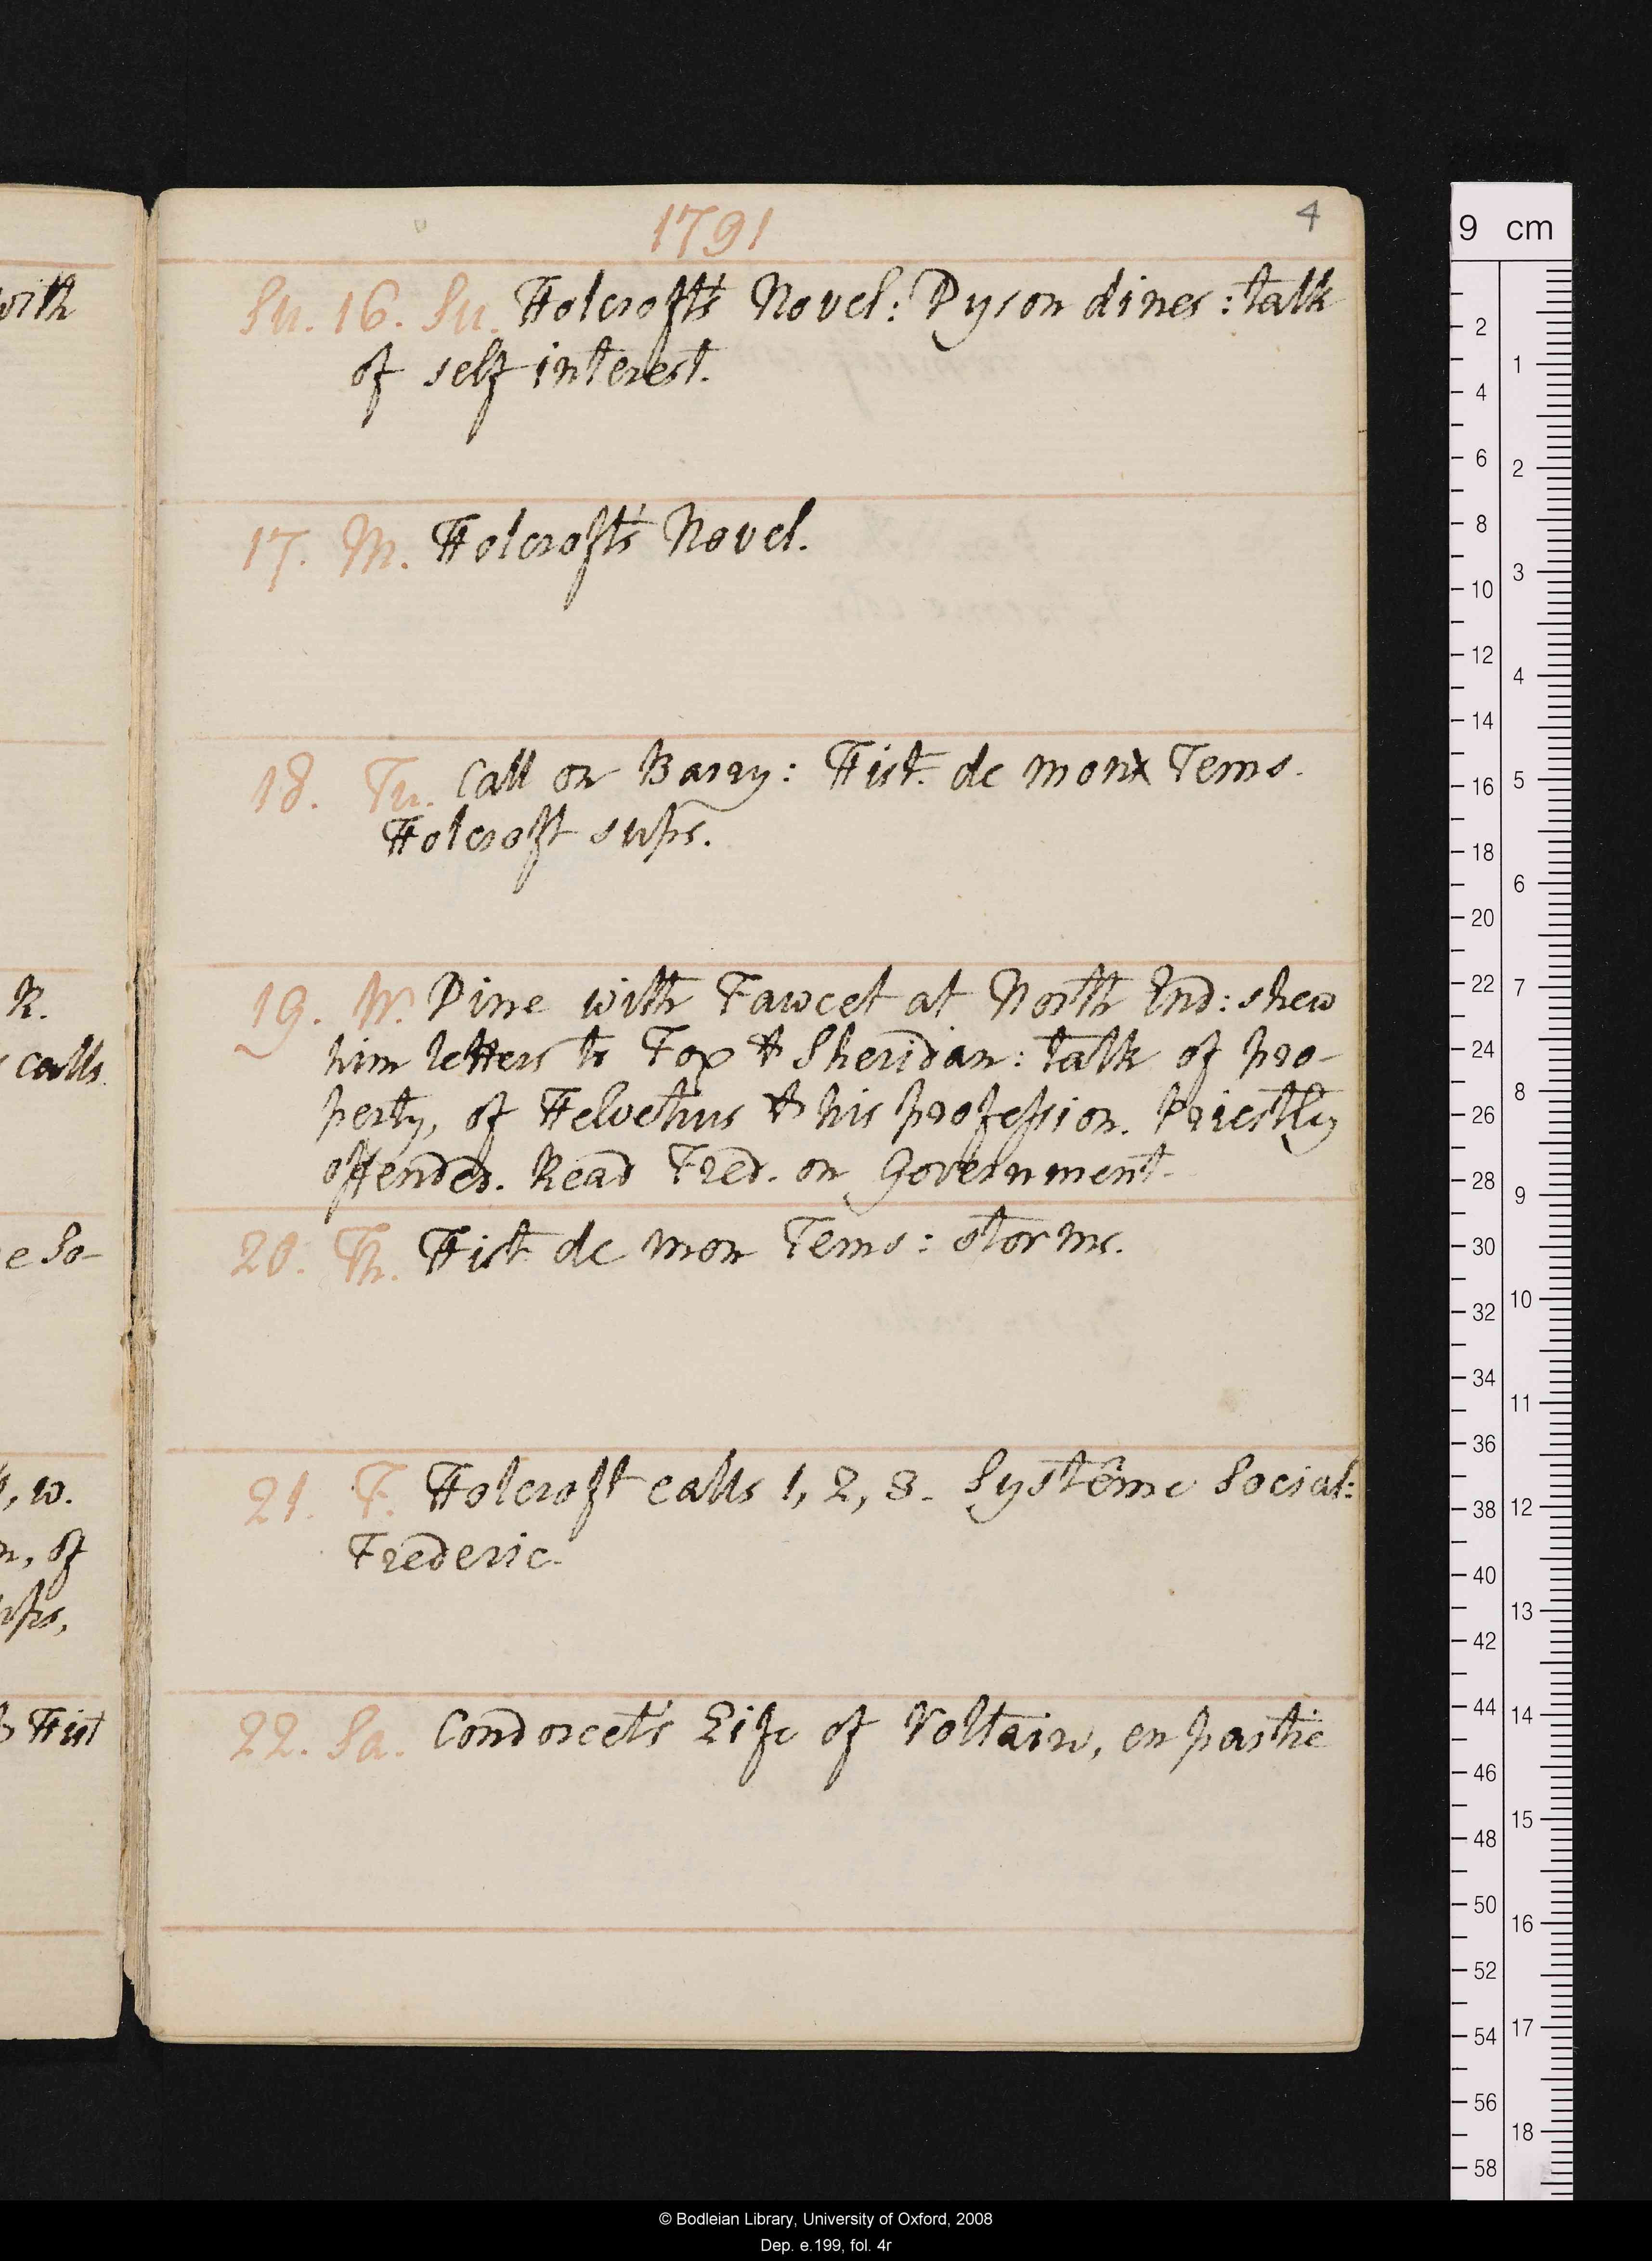 1791
4
Su. 16. Su. Holcroft's Novel: Dyson dines: talk
of self interest.
17. M. Holcroft's Novel.
18. Tu. Call on Barry: Hist. de mon Tems.
Holcroft sups.
19. W. Dine with Fawcet at North End: shew
him letters to Fox & Sheridan: talk of pro-
perty, of Helvetius & his profession. Priestley
offended. Read Fred. on Government.
20. Th. Hist de mon Tems: storms.
21. F. Holcroft calls 1, 2, 3. Systême Social:
Frederic.
22. Sa. Condorcet's Life of Voltaire, en partie
with
R.
calls.
e So-
, w.
n, of
Hist
9 cm
2
4
6
8
10
12
14
16
18
20
22
24
26
28
30
32
34
36
38
40
42
44
46
48
50
52
54
56
58
1
2
3
4
5
6
7
8
9
10
11
12
13
14
15
16
17
18
© Bodleian Library, University of Oxford, 2008
Dep. e.199, fol. 4r